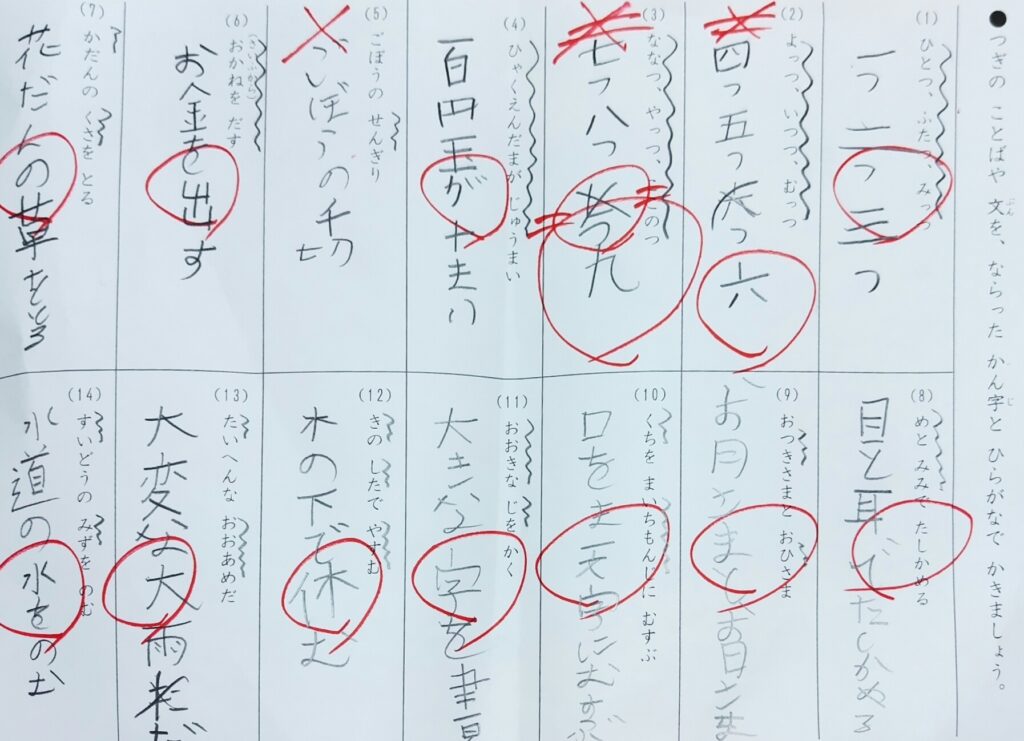 ●つぎの ことばや 文を、ならった かん字と ひらがなで かきましょう。
(1) ひとつ、ふたつ、みっつ
一つ 二つ 三つ
(2) よっつ、いつつ、むっつ
四つ 五つ 六つ
六
(3) ななつ、やっつ、ここのつ
七つ 八つ 九
(4) ひゃくえんだまが じゅうまい
百円玉が十まい
(5) ごぼうの せんぎり
ごぼうの千切
(6) (さいふから) おかねを だす
お金を出す
(7) かだんの くさを とる
花だんの草をとる
(8) めと みみで たしかめる
目と耳でたしかめる
(9) おつきさまと おひさま
お月さまとお日さま
(10) くちを まいちもんじに むすぶ
口をま一文字にむすぶ
(11) おおきな じを かく
大きな字を書
(12) きの したで やすむ
木の下で休む
(13) たいへんな おおあめだ
大変な大雨だ
(14) すいどうの みずを のむ
水道の水をのむ